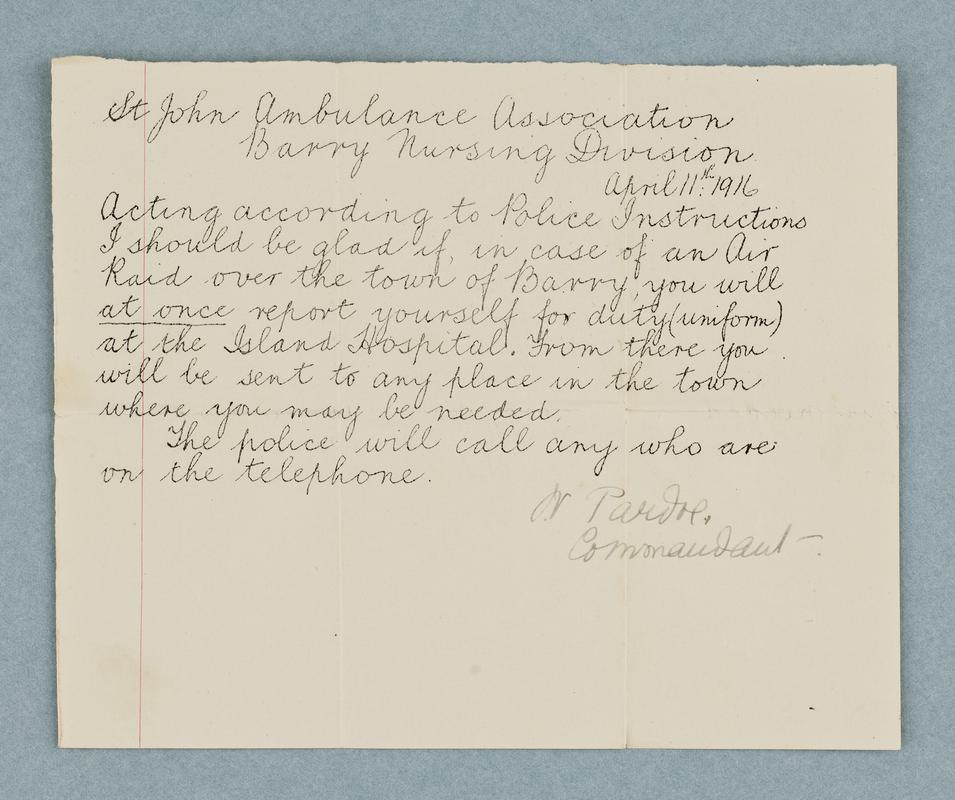 St John Ambulance Association
Barry Nursing Division.
April 11th. 1916
Acting according to Police Instructions
I should be glad if, in case of an Air
Raid over the town of Barry, you will
at once report yourself for duty (uniform)
at the Island Hospital. From there you
will be sent to any place in the town
where you may be needed.
The police will call any who are
on the telephone.
Pardoe.
Commandant -.